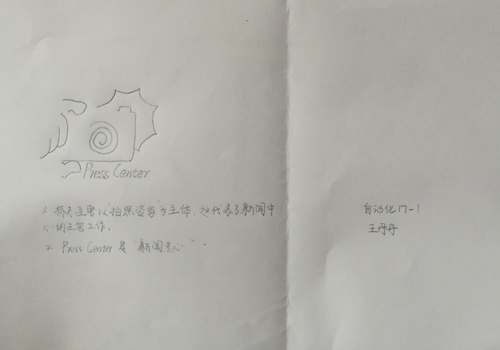 Press Center
1. 标志主要以"拍照姿势"为主体，这代表了新闻中
心的主要工作。
2. Press Center 是"新闻中心"。
自动化17-1
王丹丹